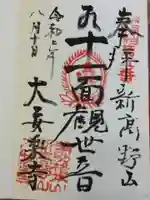 奉拝
新高野山
十一面観世音
大安楽寺
令和二年
八月十日